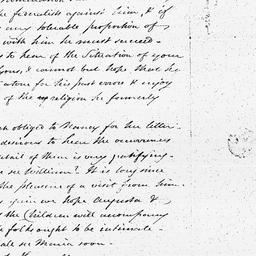 the federalists against him, & if
any tolerable proportion of
with him he must succeed-
to hear of the situation of your
I cannot but hope that he
atone for his past errors & enjoy
of the religion he formerly
obliged to Nancy for her letter-
desirous to hear the occurrences
detail of them is very gratifying-
see William? It is long since
the pleasure of a visit from him-
we hope Augusta &
the Children will accompany
folks ought to be intimate-
see Maria soon-